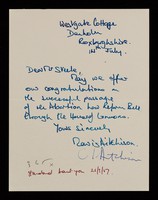 Westgate Cottage
Denholm
Roxburghshire.
14th July.
Dear Mr Steele,
May we offer
our congratulations on
the successful passage
of the Abortion Law Reform Bill
through the House of Commons.
Yours Sincerely